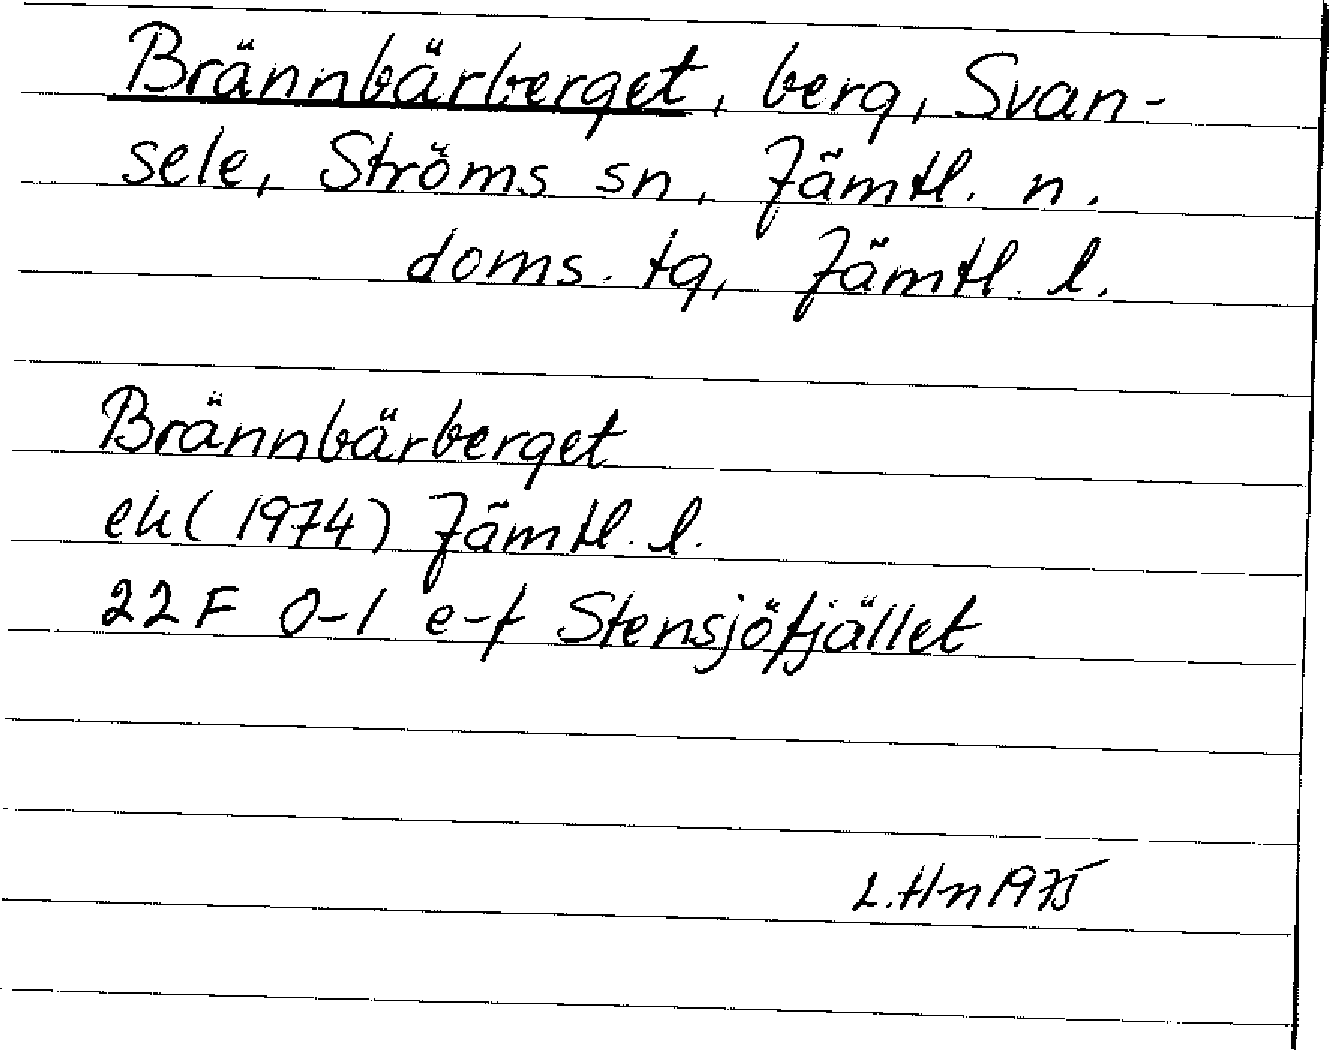 Brännbärberget, berg, Svan-
sele, Ströms sn, Jämtl. n.
doms. tg, Jämtl. l.
Brännbärberget
ek (1974) Jämtl. l.
22F 0-1 e-f Stensjöfjället
L.Hn 1975